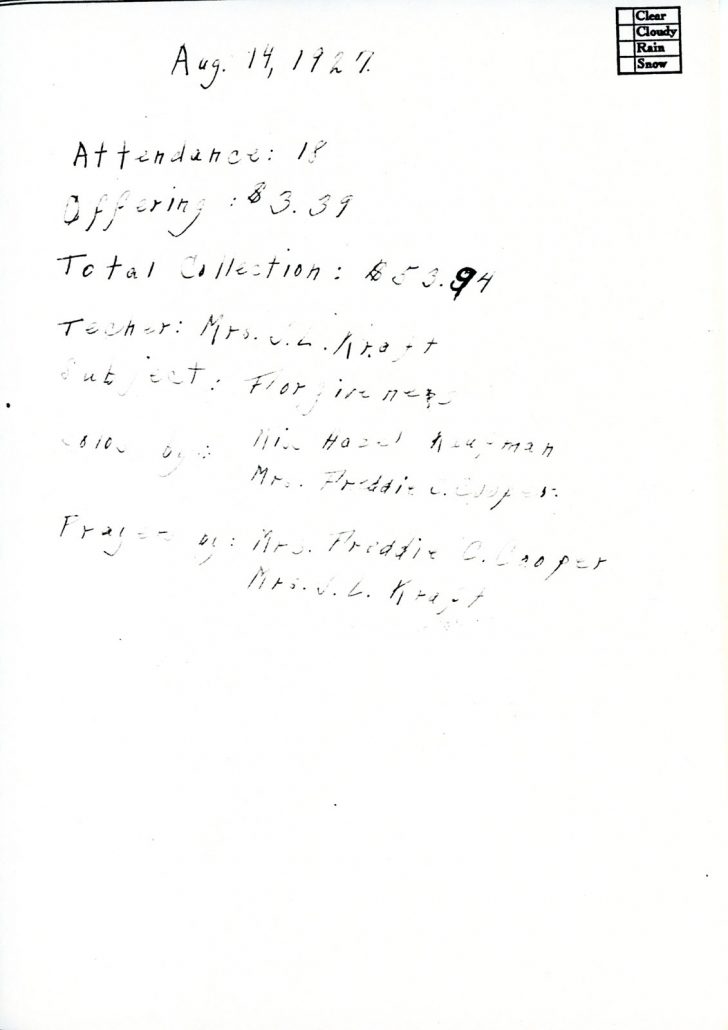 Clear
Cloudy
Rain
Snow
Aug. 14, 1927.
Attendance: 18
Offering: $3.39
Total Collection: $53.94
Techer: Mrs. J.L. Kraft
Subject: Florgiveness
Solos by: Miss Hazel Kaufman
Mrs. Freddie C. Cooper.
Prayers by: Mrs. Freddie C. Cooper
Mrs. J. L. Kraft